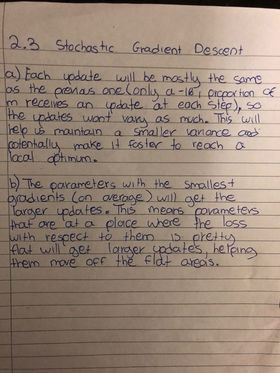 2.3 Stochastic Gradient Descent
a) Each update will be mostly the same
as the previous one (only a 
m receives an update at each step), so
the updates wont vary as much. This will
help us maintain a smaller variance and
potentially make it faster to reach a
local optimum.
b) The parameters with the smallest
gradients (on average) will get the
larger updates. This means parameters
that are at a place where the loss
with respect to them is pretty
flat will get larger updates, helping
them move off the flat areas.